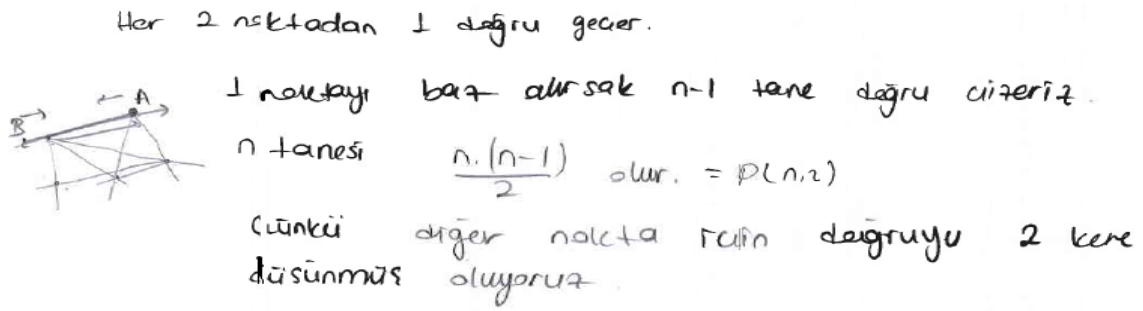 Her 2 noktadan 1 doğru geçer.
A
B
1 noktayı baz alırsak n-1 tane doğru çizeriz.
n tanesi n.(n-1)/2 olur. = P(n,2)
Çünkü diğer nokta için doğruyu 2 kere
düşünmüş oluyoruz